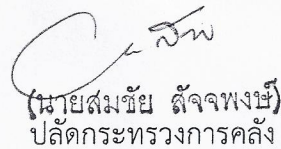 (นายสมชัย สัจจพงษ์)
ปลัดกระทรวงการคลัง